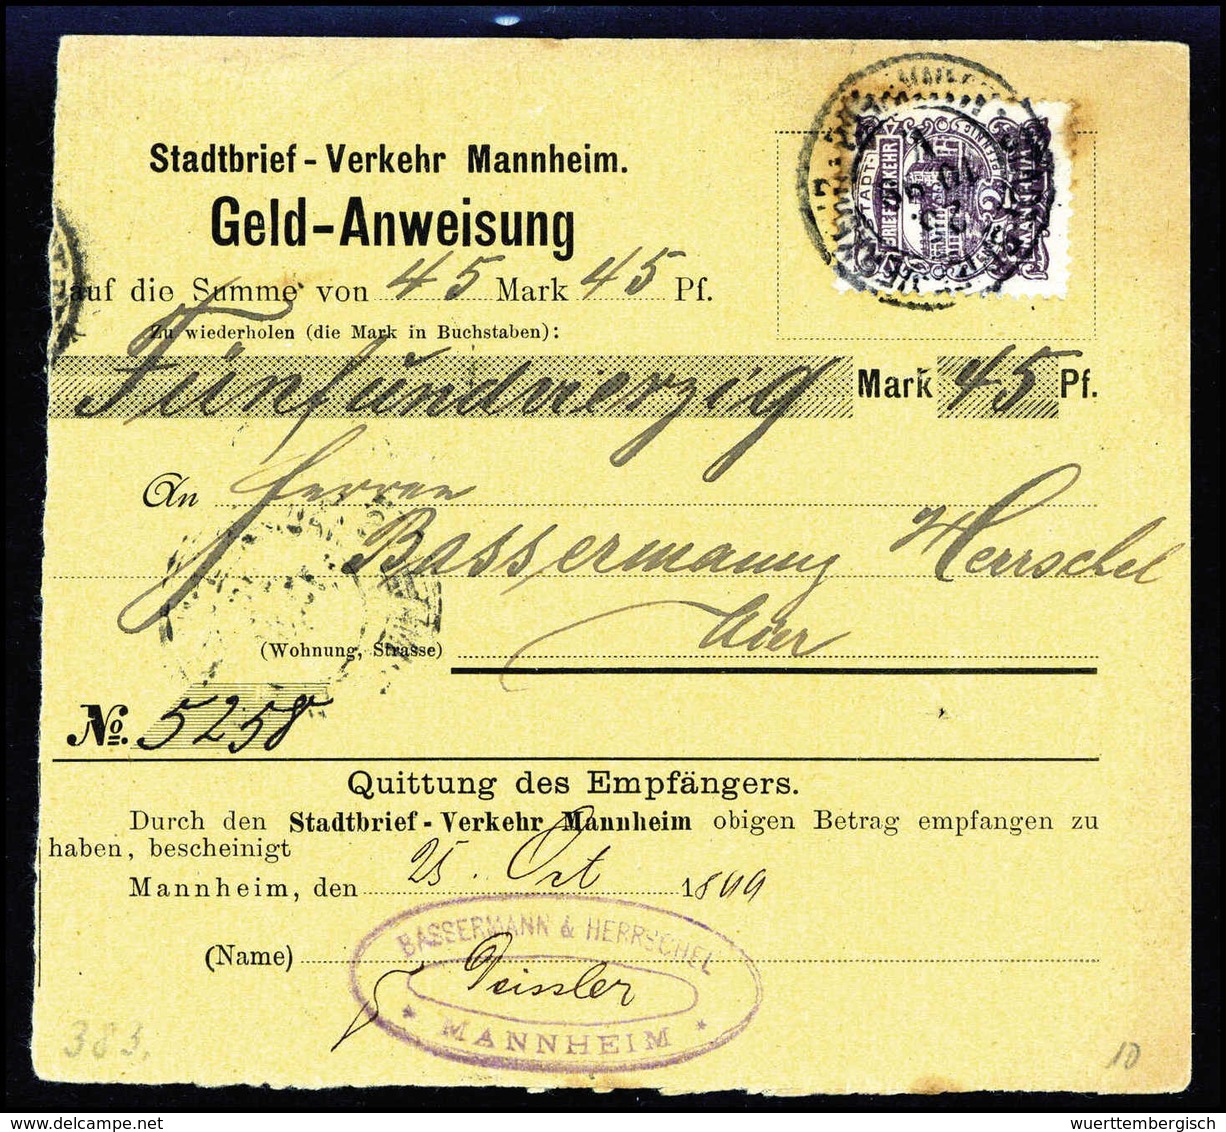 Stadtbrief-Verkehr Mannheim.
Geld-Anweisung
auf die Summe von 45 Mark 45 Pf.
Zu wiederholen (die Mark in Buchstaben):
Fünfundvierzig Mark 45 Pf.
An Herren
Bassermann, Herrschel
hier
(Wohnung, Strasse)
No. 5258
Quittung des Empfängers.
Durch den Stadtbrief-Verkehr Mannheim obigen Betrag empfangen zu
haben, bescheinigt
Mannheim, den 25. Oct 1899
BASSERMANN & HERRSCHEL
(Name)
MANNHEIM
STADT-
BRIEF VERKEHR
MANNHEIM
383.
10
wuerttembergisch